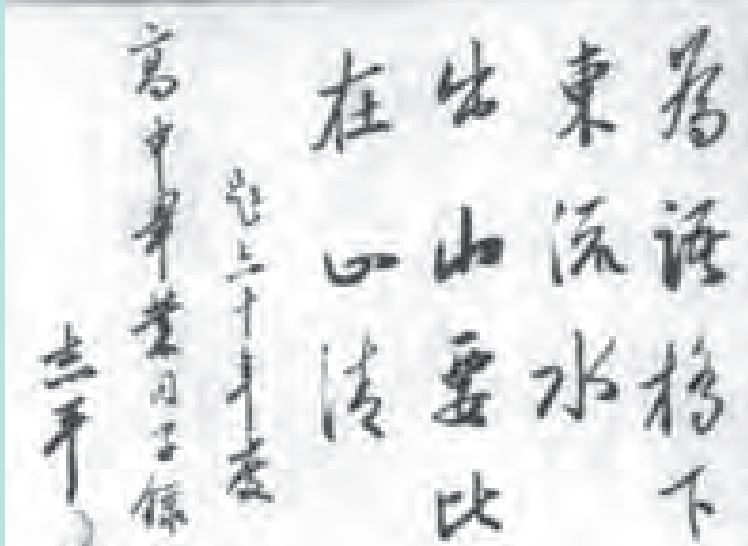 為語橋下
東流水
出山要比
在山清
題六十年度
高中畢業同學錄
志平